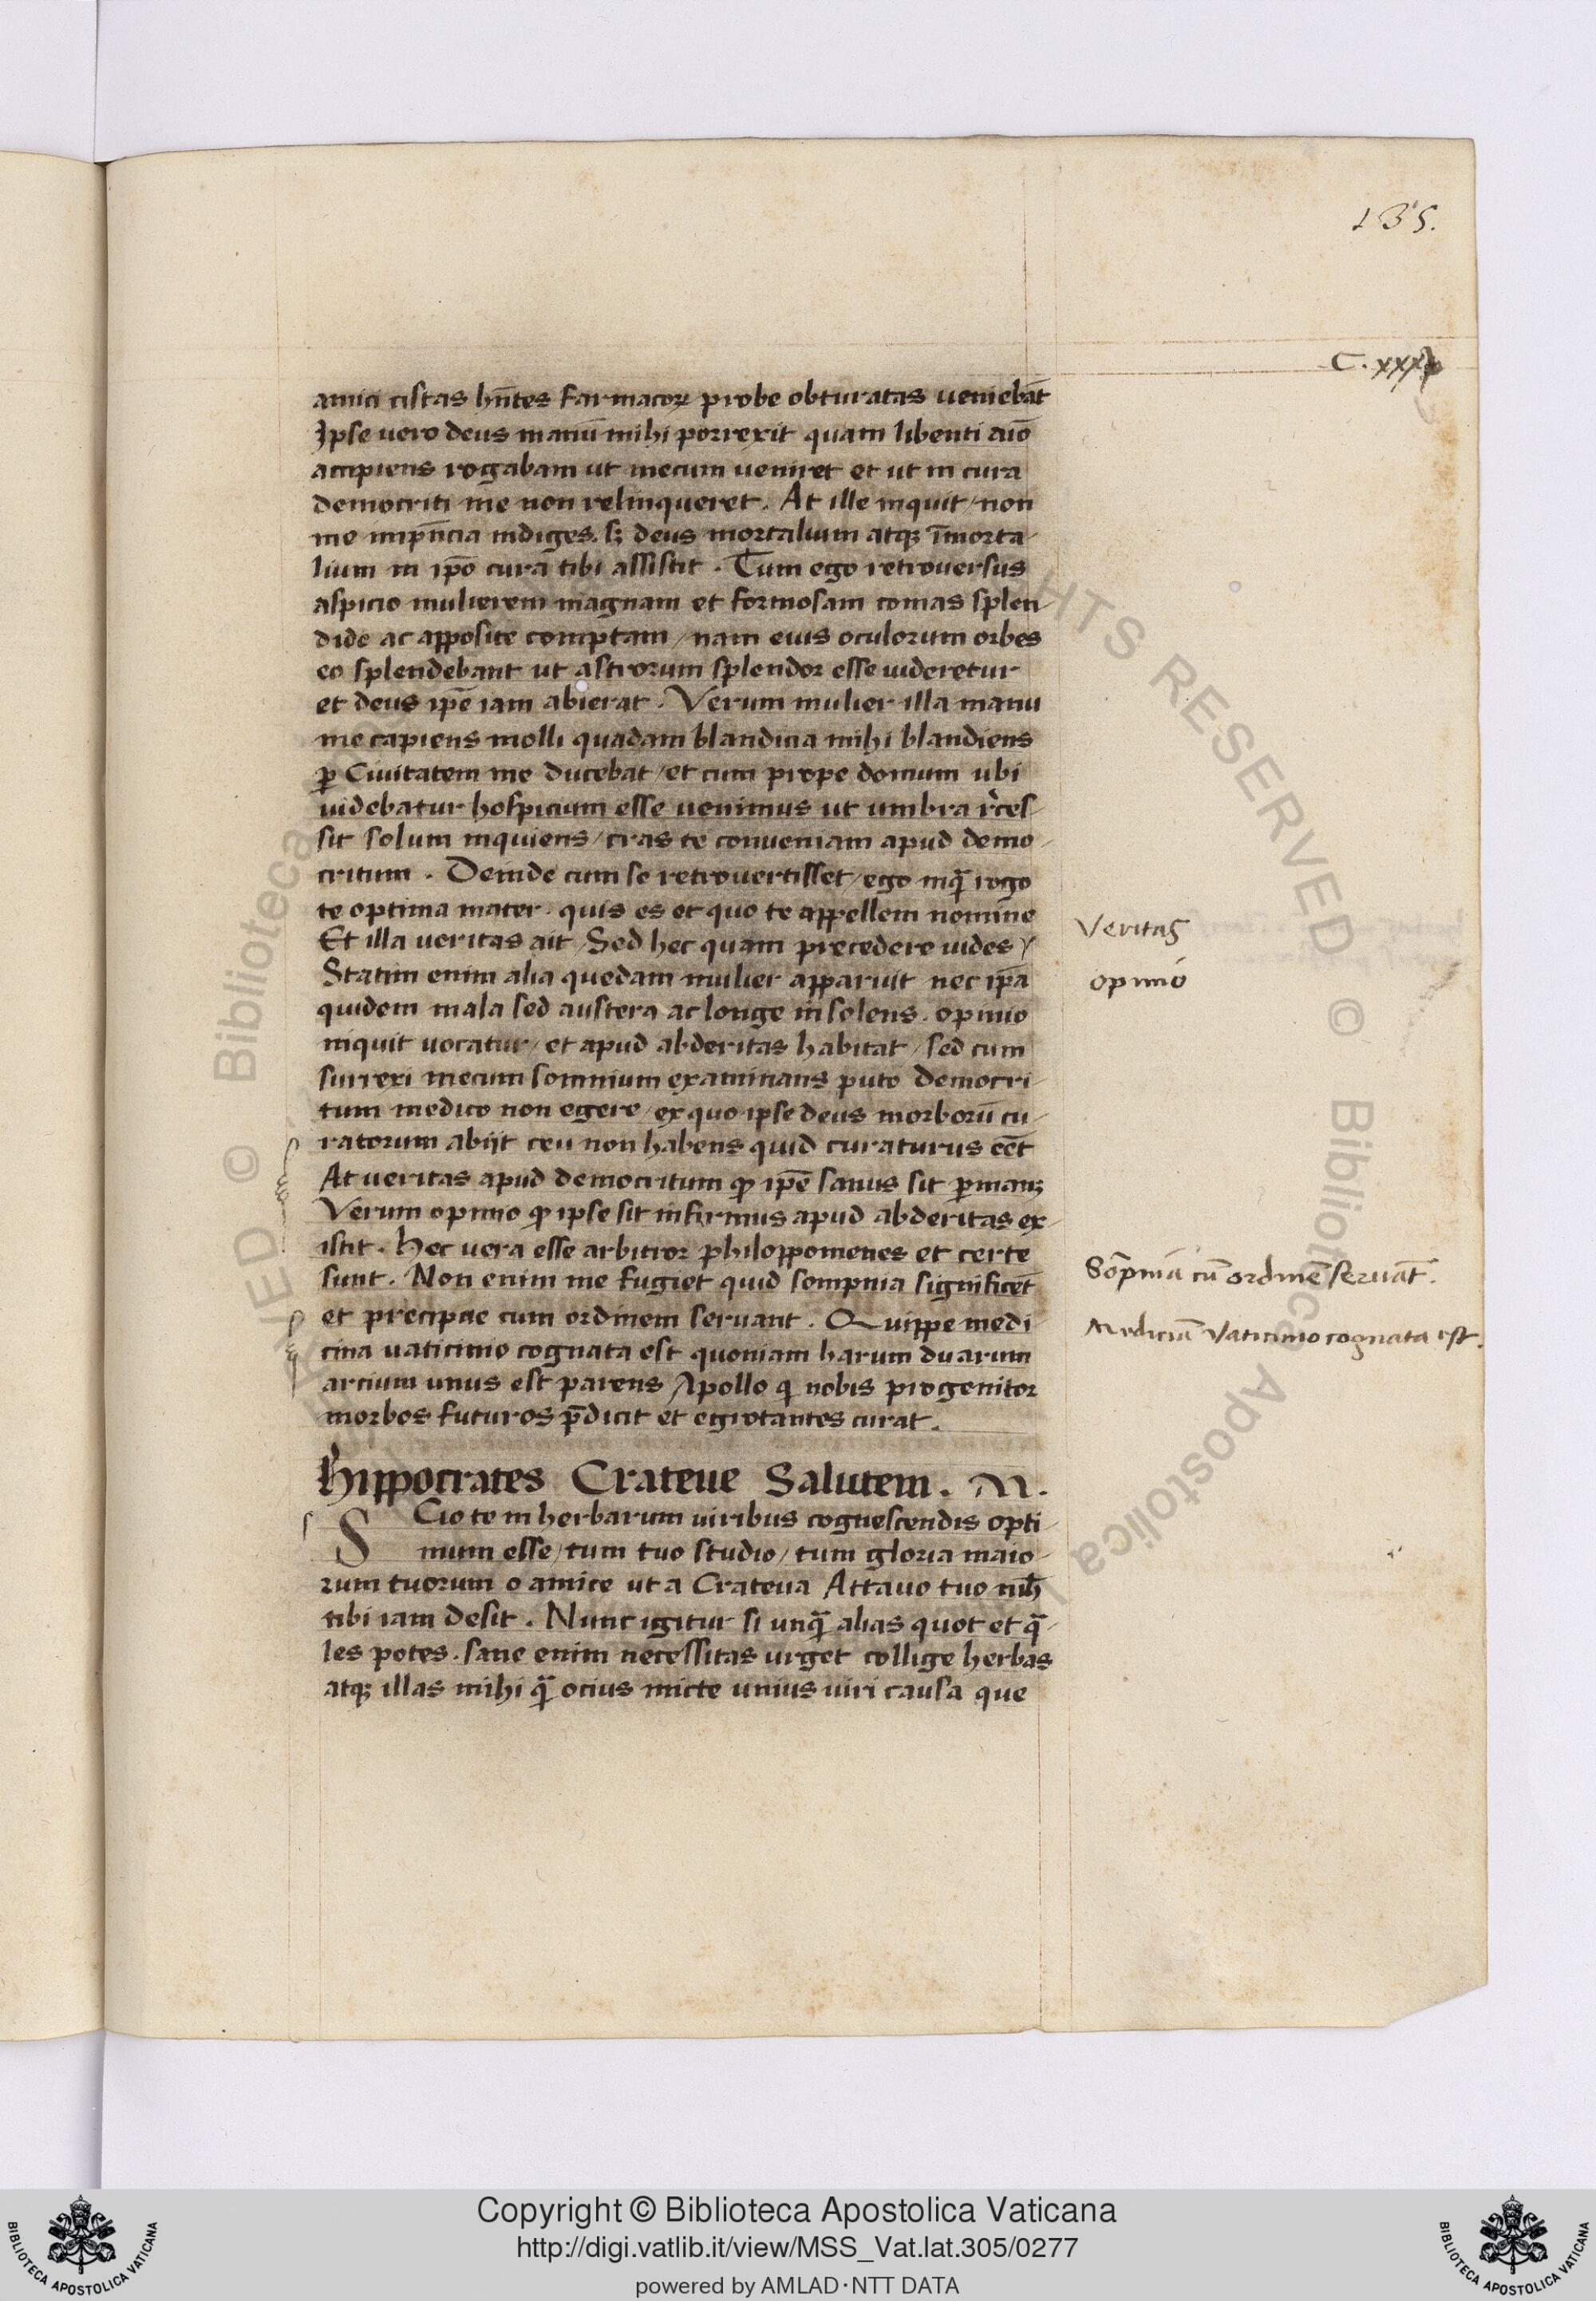 135.
C. xxx
amici cistas hñtes farmacoꝝ probe obturatas veniebāt
Ipse vero deus manū mihi porrexit quam libenti aīo
accipiens rogabam ut mecum veniret et ut in cura
democriti me non relinqueret. At ille inquit / non
me impñcia indiges. sꝫ deus mortalium atqꝫ īmorta-
lium in ip̄o curā tibi assistit. Tum ego retroversus
aspicio mulierem magnam et formosam comas splen-
dide ac apposite comptam / nam eius oculorum orbes
eo splendebant ut astrorum splendor esse videretur
et deus ip̄e iam abierat. Verum mulier illa manu
me capiens molli quadam blandicia mihi blandiens
ꝑ Civitatem me ducebat / et cum prope domum ubi
videbatur hospicium esse venimus ut umbra rͨces-
sit solum inquiens / cras te conveniam apud demo-
critum. Deinde cum se retrovertisset / ego inqͣ̄ rogo
te optima mater. quis es et quo te appellem nomine
Et illa veritas ait / Sed hec quam precedere vides /
Statim enim alia quedam mulier apparuit nec ip̄a
quidem mala sed austera ac longe insolens. opinio
inquit vocatur / et apud abderitas habitat / sed cum
surrexi mecum somnium examinans puto democri-
tum medico non egere / ex quo ipse deus morborū cu-
ratorum abijt ceu non habens quid curaturus eēt
At veritas apud democritum ꝙ ip̄e sanus sit ꝑmanꝫ
Verum opinio ꝙ ipse sit infirmus apud abderitas ex-
istit. Hec vera esse arbitror philoppomenes et certe
sunt. Non enim me fugiet quid sompnia significēt
et precipue cum ordinem servant. Quippe medi
cina vaticinio cognata est quoniam harum duarum
arcium unus est parens Apollo qͥ nobis progenitor
morbos futuros p̄dicit et egrotantes curat.
Veritas
opinio
Sōpnia cū ordinē servāt.
Medicīa Vaticinio cognata est.
Hippocrates Crateue Salutem. N.
SCio te in herbarum viribus cognescendis opti-
mum esse / tum tuo studio / tum gloria maio-
rum tuorum o amice ut a Crateua Attavo tuo nih̄
tibi iam desit. Nunc igitur si unqͣ̄ alias quot et qͣ-
les potes. sane enim necessitas urget collige herbas
atqꝫ illas mihi qͣ̄ ocius micte unius viri causa que
Copyright © Biblioteca Apostolica Vaticana
http://digi.vatlib.it/view/MSS_Vat.lat.305/0277
powered by AMLAD·NTT DATA
BIBLIOTECA APOSTOLICA VATICANA
BIBLIOTECA APOSTOLICA VATICANA